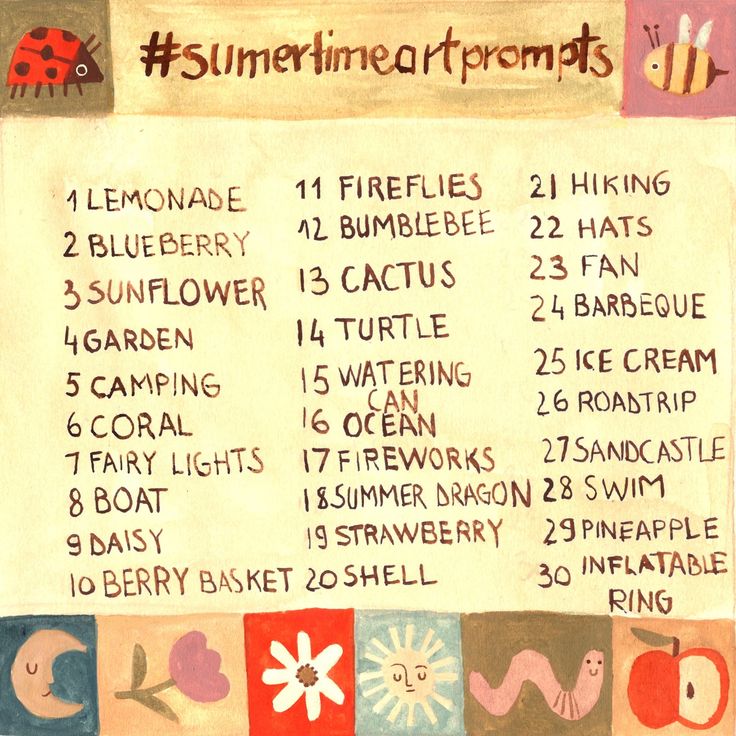 #sumertimeartprompts
1 LEMONADE
2 BLUEBERRY
3 SUNFLOWER
4 GARDEN
5 CAMPING
6 CORAL
7 FAIRY LIGHTS
8 BOAT
9 DAISY
10 BERRY BASKET
11 FIREFLIES
12 BUMBLEBEE
13 CACTUS
14 TURTLE
15 WATERING
CAN
16 OCEAN
17 FIREWORKS
18 SUMMER DRAGON
19 STRAWBERRY
20 SHELL
21 HIKING
22 HATS
23 FAN
24 BARBEQUE
25 ICE CREAM
26 ROADTRIP
27 SANDCASTLE
28 SWIM
29 PINEAPPLE
30 INFLATABLE
RING